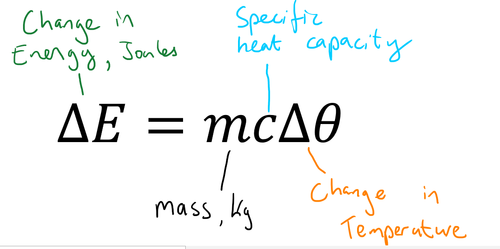 Change in
Energy, Joules
Specific
heat capacity
ΔE = mcΔθ
mass, kg
Change in
Temperature